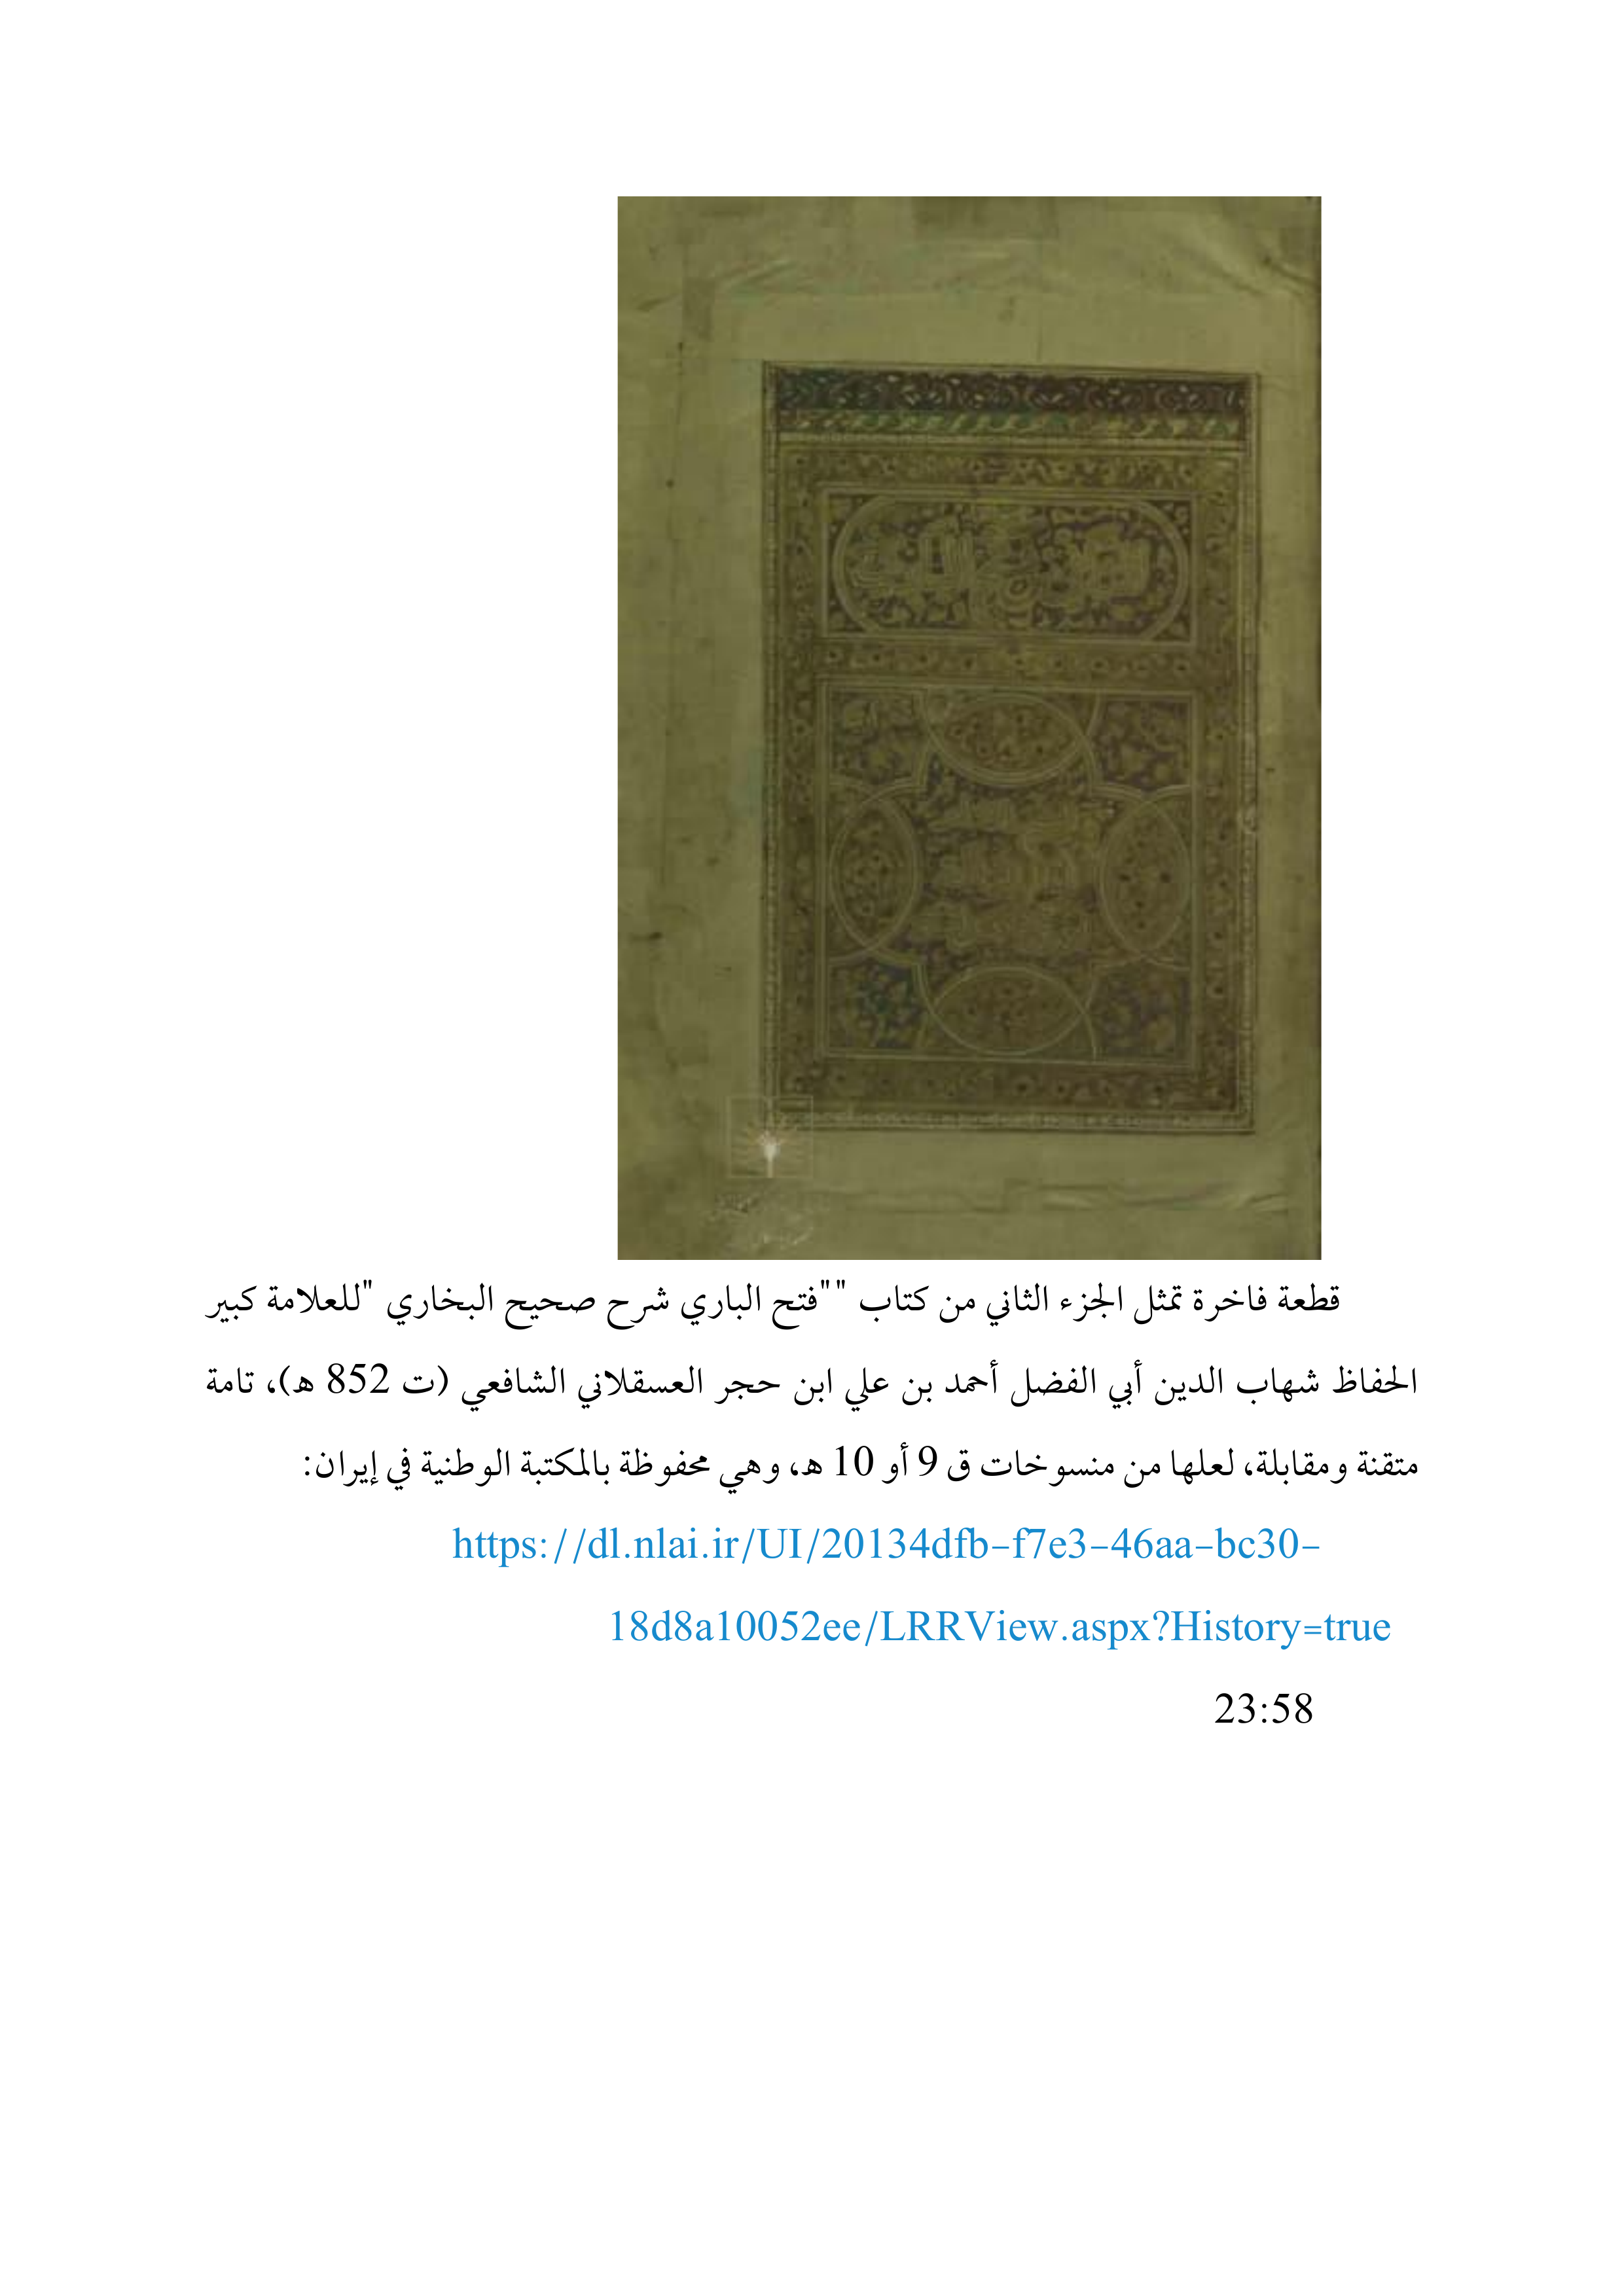 قطعة فاخرة تمثل الجزء الثاني من كتاب ""فتح الباري شرح صحيح البخاري "للعلامة كبير
الحفاظ شهاب الدين أبي الفضل أحمد بن علي ابن حجر العسقلاني الشافعي (ت 852 ه)، تامة
متقنة ومقابلة، لعلها من منسوخات ق 9 أو 10 ه، وهي محفوظة بالمكتبة الوطنية في إيران:
https://dl.nlai.ir/UI/20134dfb-f7e3-46aa-bc30-
18d8a10052ee/LRRView.aspx?History=true
23:58